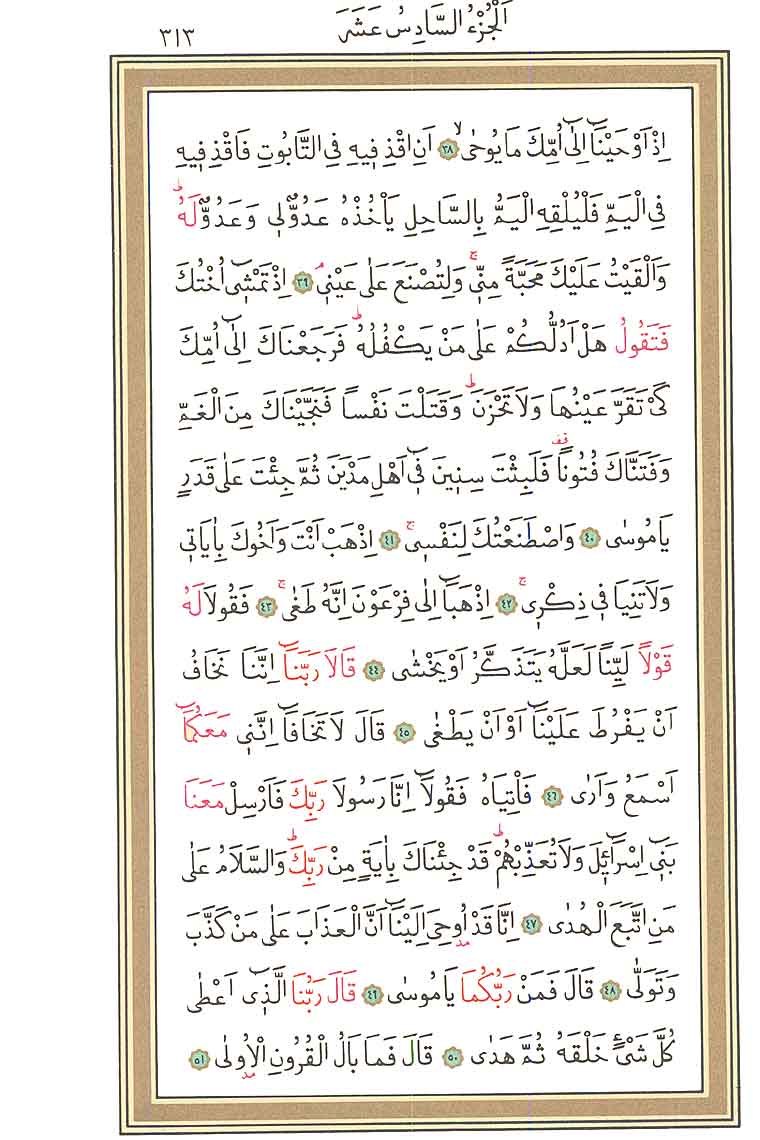 اَلْجُزْءُ السَّادِسُ عَشَرَ
٣١٣
اِذْ اَوْحَيْنَٓا اِلٰٓى اُمِّكَ مَا يُوحٰىۙ ﴿٣٨﴾ اَنِ اقْذِف۪يهِ فِي التَّابُوتِ فَاقْذِف۪يهِ
فِي الْيَمِّ فَلْيُلْقِهِ الْيَمُّ بِالسَّاحِلِ يَأْخُذْهُ عَدُوٌّ ل۪ي وَعَدُوٌّ لَهُۜ
وَاَلْقَيْتُ عَلَيْكَ مَحَبَّةً مِنّ۪يۚ وَلِتُصْنَعَ عَلٰى عَيْن۪يۢ ﴿٣٩﴾ اِذْ تَمْش۪ٓي اُخْتُكَ
فَتَقُولُ هَلْ اَدُلُّكُمْ عَلٰى مَنْ يَكْفُلُهُۜ فَرَجَعْنَاكَ اِلٰٓى اُمِّكَ
كَيْ تَقَرَّ عَيْنُهَا وَلَا تَحْزَنَۜ وَقَتَلْتَ نَفْساً فَنَجَّيْنَاكَ مِنَ الْغَمِّ
وَفَتَنَّاكَ فُتُوناً۠ فَلَبِثْتَ سِن۪ينَ ف۪ٓي اَهْلِ مَدْيَنَ ثُمَّ جِئْتَ عَلٰى قَدَرٍ
يَا مُوسٰى ﴿٤٠﴾ وَاصْطَنَعْتُكَ لِنَفْس۪يۚ ﴿٤١﴾ اِذْهَبْ اَنْتَ وَاَخُوكَ بِاٰيَات۪ي
وَلَا تَنِيَا ف۪ي ذِكْر۪يۚ ﴿٤٢﴾ اِذْهَبَٓا اِلٰى فِرْعَوْنَ اِنَّهُ طَغٰىۚ ﴿٤٣﴾ فَقُولَا لَهُ
قَوْلاً لَيِّناً لَعَلَّهُ يَتَذَكَّرُ اَوْ يَخْشٰى ﴿٤٤﴾ قَالَا رَبَّنَٓا اِنَّنَا نَخَافُ
اَنْ يَفْرُطَ عَلَيْنَٓا اَوْ اَنْ يَطْغٰى ﴿٤٥﴾ قَالَ لَا تَخَافَٓا اِنَّن۪ي مَعَكُمَٓا
اَسْمَعُ وَاَرٰى ﴿٤٦﴾ فَأْتِيَاهُ فَقُولَٓا اِنَّا رَسُولَا رَبِّكَ فَاَرْسِلْ مَعَنَا
بَن۪ٓي اِسْرَٓائ۪لَ وَلَا تُعَذِّبْهُمْۜ قَدْ جِئْنَاكَ بِاٰيَةٍ مِنْ رَبِّكَۜ وَالسَّلَامُ عَلٰى
مَنِ اتَّبَعَ الْهُدٰى ﴿٤٧﴾ اِنَّا قَدْ اُو۫حِيَ اِلَيْنَٓا اَنَّ الْعَذَابَ عَلٰى مَنْ كَذَّبَ
وَتَوَلّٰى ﴿٤٨﴾ قَالَ فَمَنْ رَبُّكُمَا يَا مُوسٰى ﴿٤٩﴾ قَالَ رَبُّنَا الَّذ۪ٓي اَعْطٰى
كُلَّ شَيْءٍ خَلْقَهُ ثُمَّ هَدٰى ﴿٥٠﴾ قَالَ فَمَا بَالُ الْقُرُونِ الْاُو۫لٰى ﴿٥١﴾